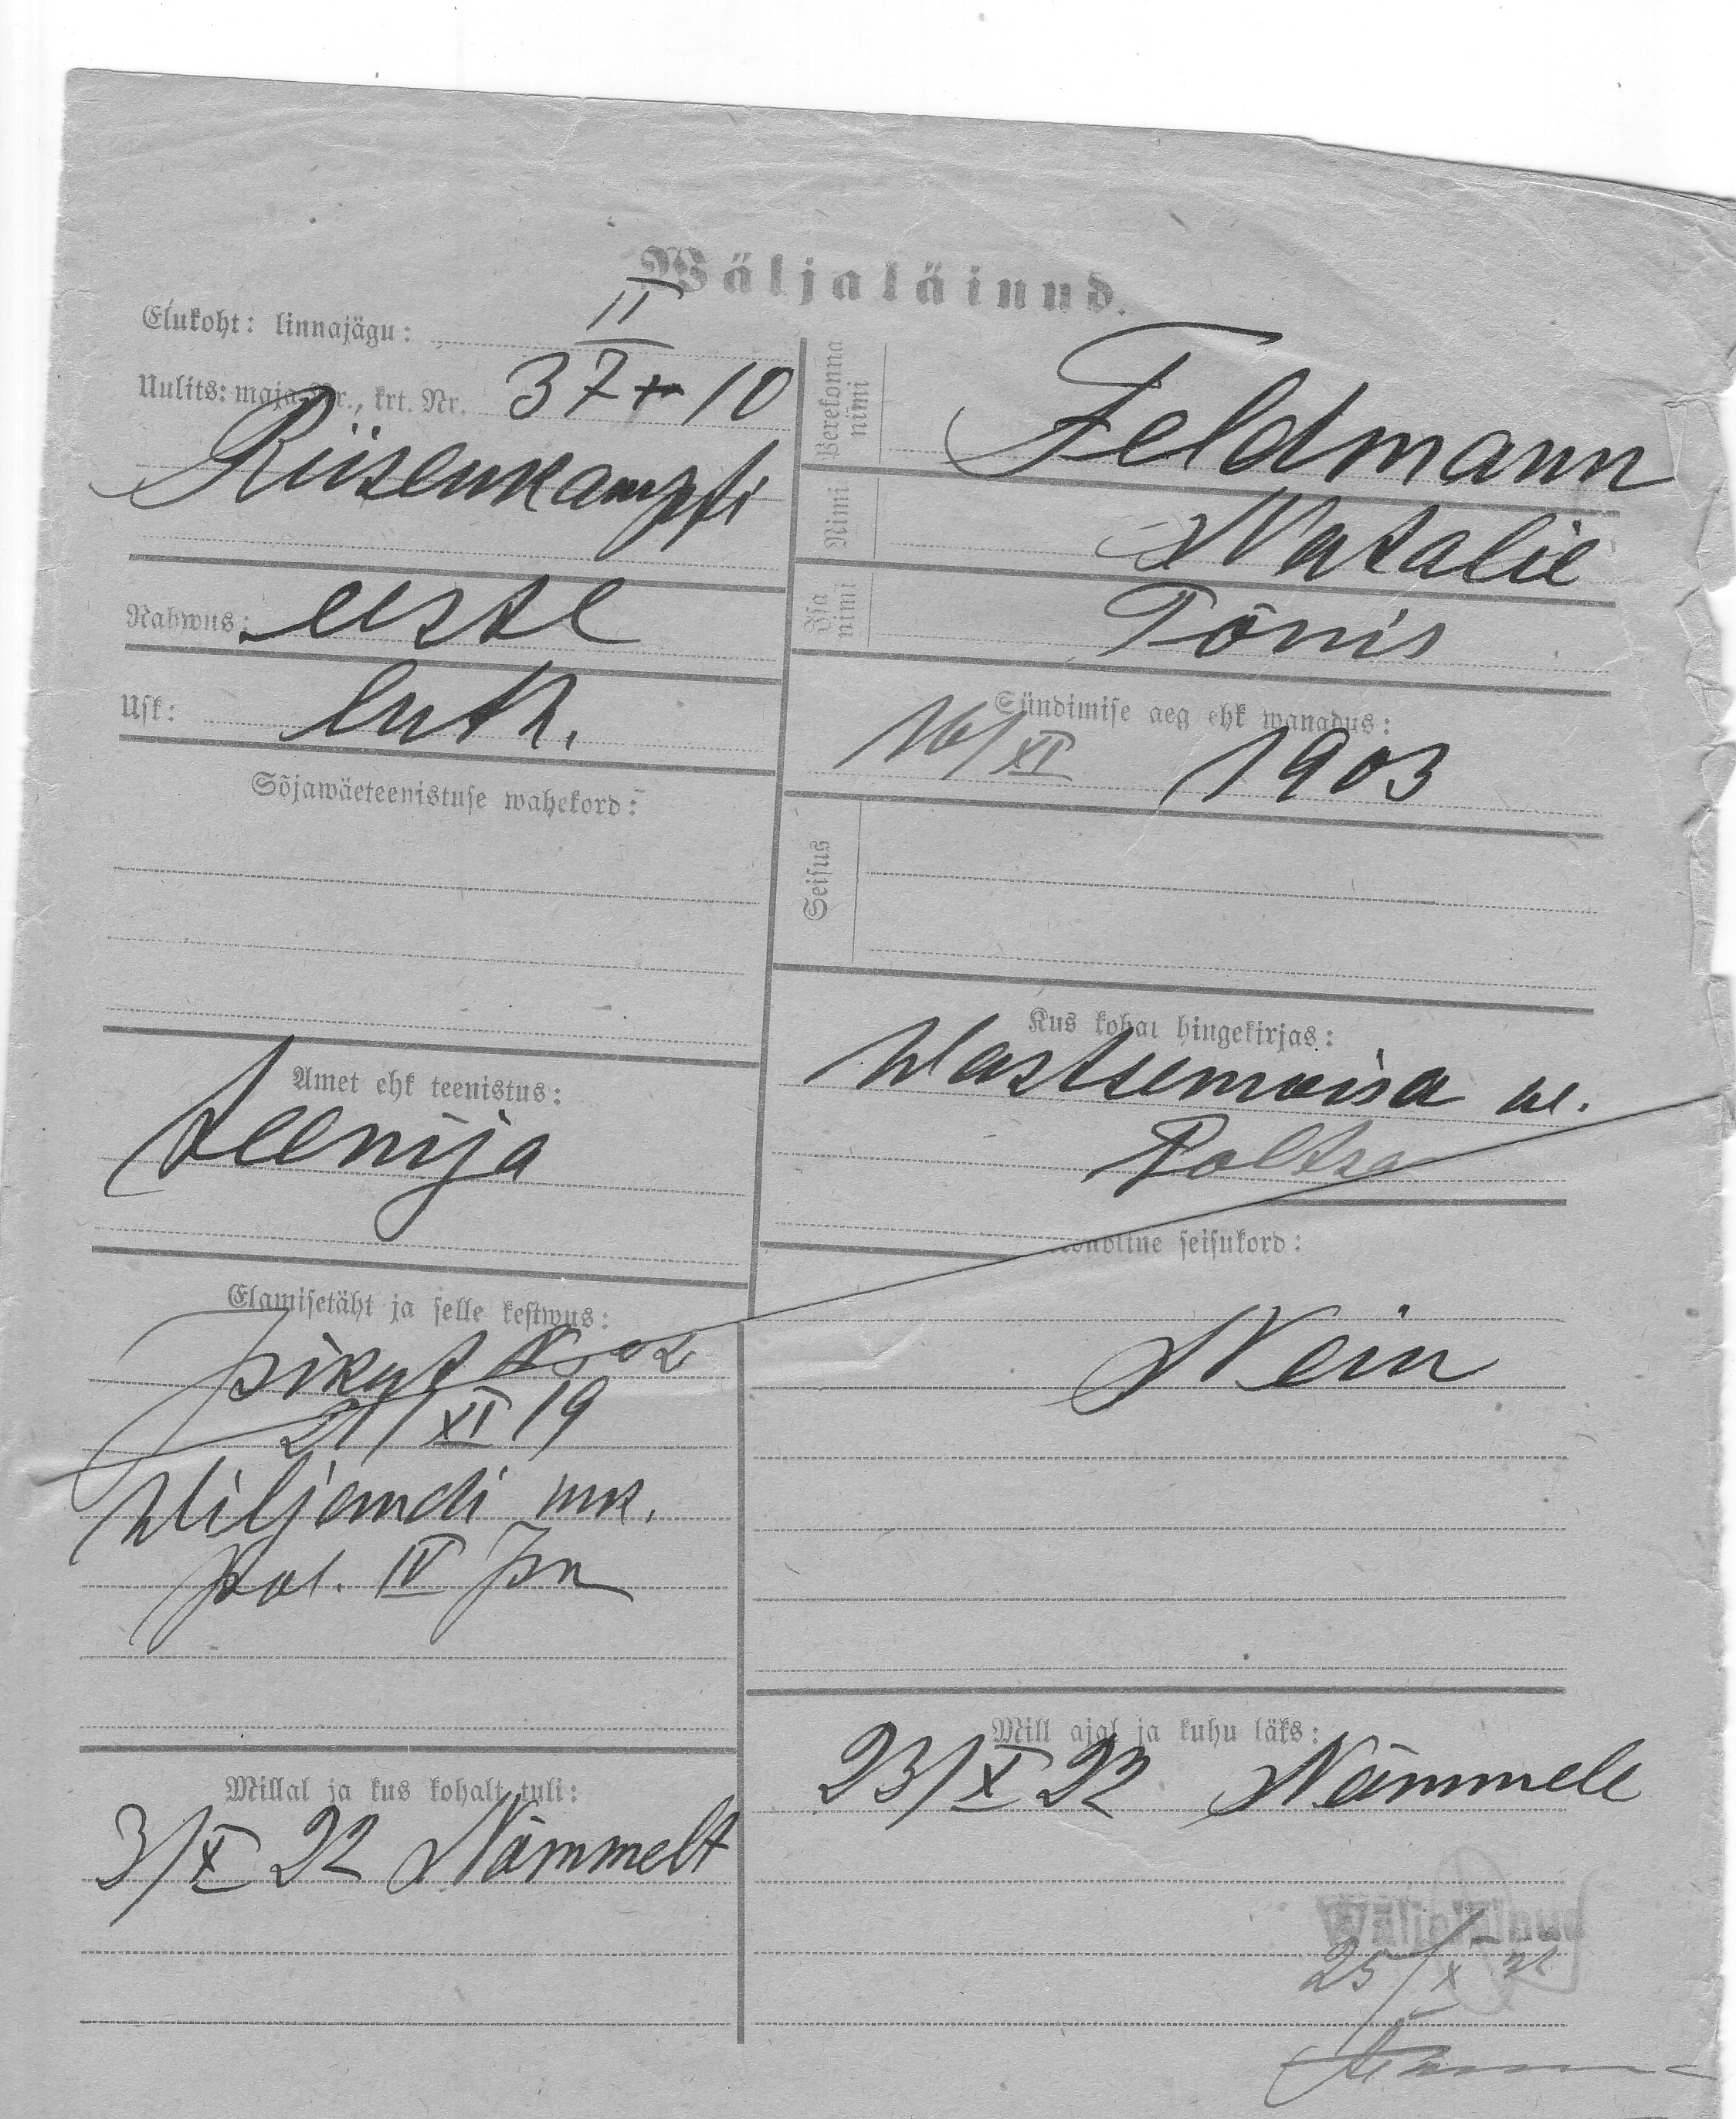 Wäljaläinud.
Elukoht: linnajägu: II
Uulits: maja Nr., krt. Nr. 37 + 10
Rüsenkampfi
Rahwus: eestl
Usk: luth.
Sõjawäeteenistuse wahekord:
Amet ehk teenistus:
teenija
Elamisetäht ja selle kestwus:
21/XI 19
Wiljandi mk.
Pol. IV Jsk
Millal ja kus kohalt tuli:
3/X 22 Nõmmelt
Perekonna nimi
Feldmann
Nimi
Natalie
Isa nimi
Tõnis
Sündimise aeg ehk wanadus:
16/XI 1903
Seisus
Kus kohal hingekirjas:
Wastsemoisa w.
seisukord:
Nein
Mill ajal ja kuhu läks:
23/X 22 Nõmmele
Wäljaläinud
25/X 22